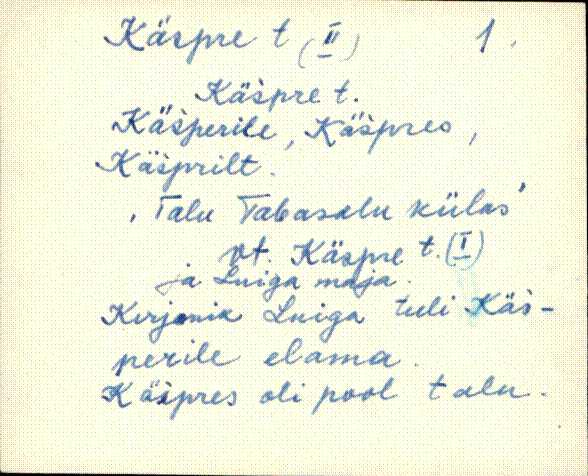 Käspre t (II) 1.
Käśpre t.
Käśperile, Käśpres,
Käśprilt.
'Talu Tabasalu külas'
vt. Käspre t. (I)
ja Luiga maja.
Kirjanik Luiga tuli Käs-
perile elama.
Käśpres oli pool talu.